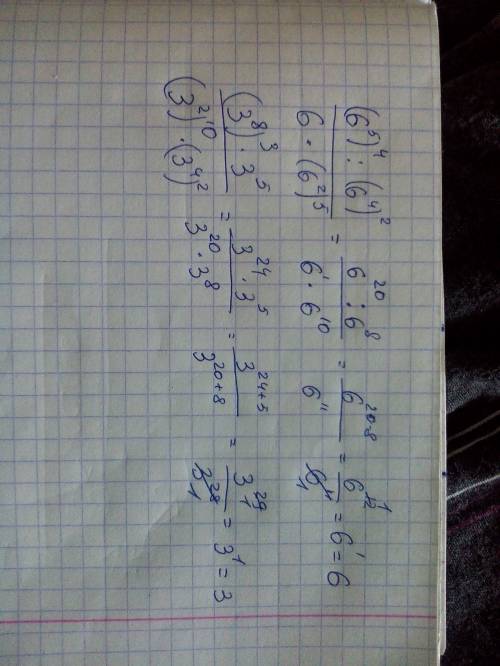 (6⁵)⁴ : (6⁴)² / 6 · (6²)⁵ = 6²⁰ : 6⁸ / 6¹ · 6¹⁰ = 6²⁰⁻⁸ / 6¹¹ = 6¹² 1 / 6¹¹ 1 = 6¹ = 6
(3⁸)³ · 3⁵ / (3²)¹⁰ · (3⁴)² = 3²⁴ · 3⁵ / 3²⁰ · 3⁸ = 3²⁴⁺⁵ / 3²⁰⁺⁸ = 3²⁹ 1 / 3²⁸ 1 = 3¹ = 3